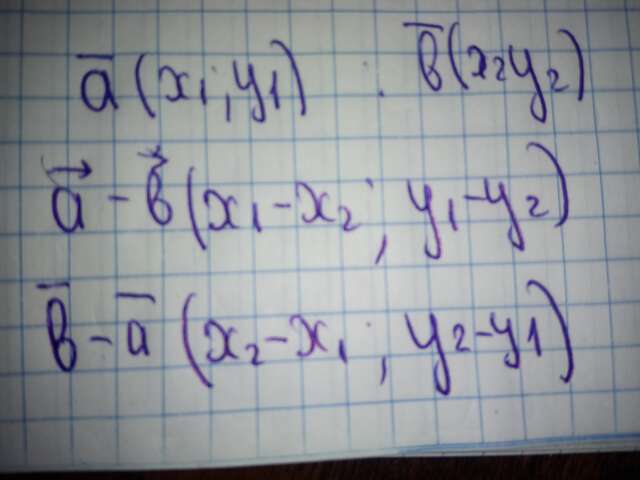 a̅ (x₁; y₁) b̅ (x₂ y₂)
a⃗ - b⃗ (x₁ - x₂ ; y₁ - y₂)
b̅ - a̅ (x₂ - x₁ ; y₂ - y₁)